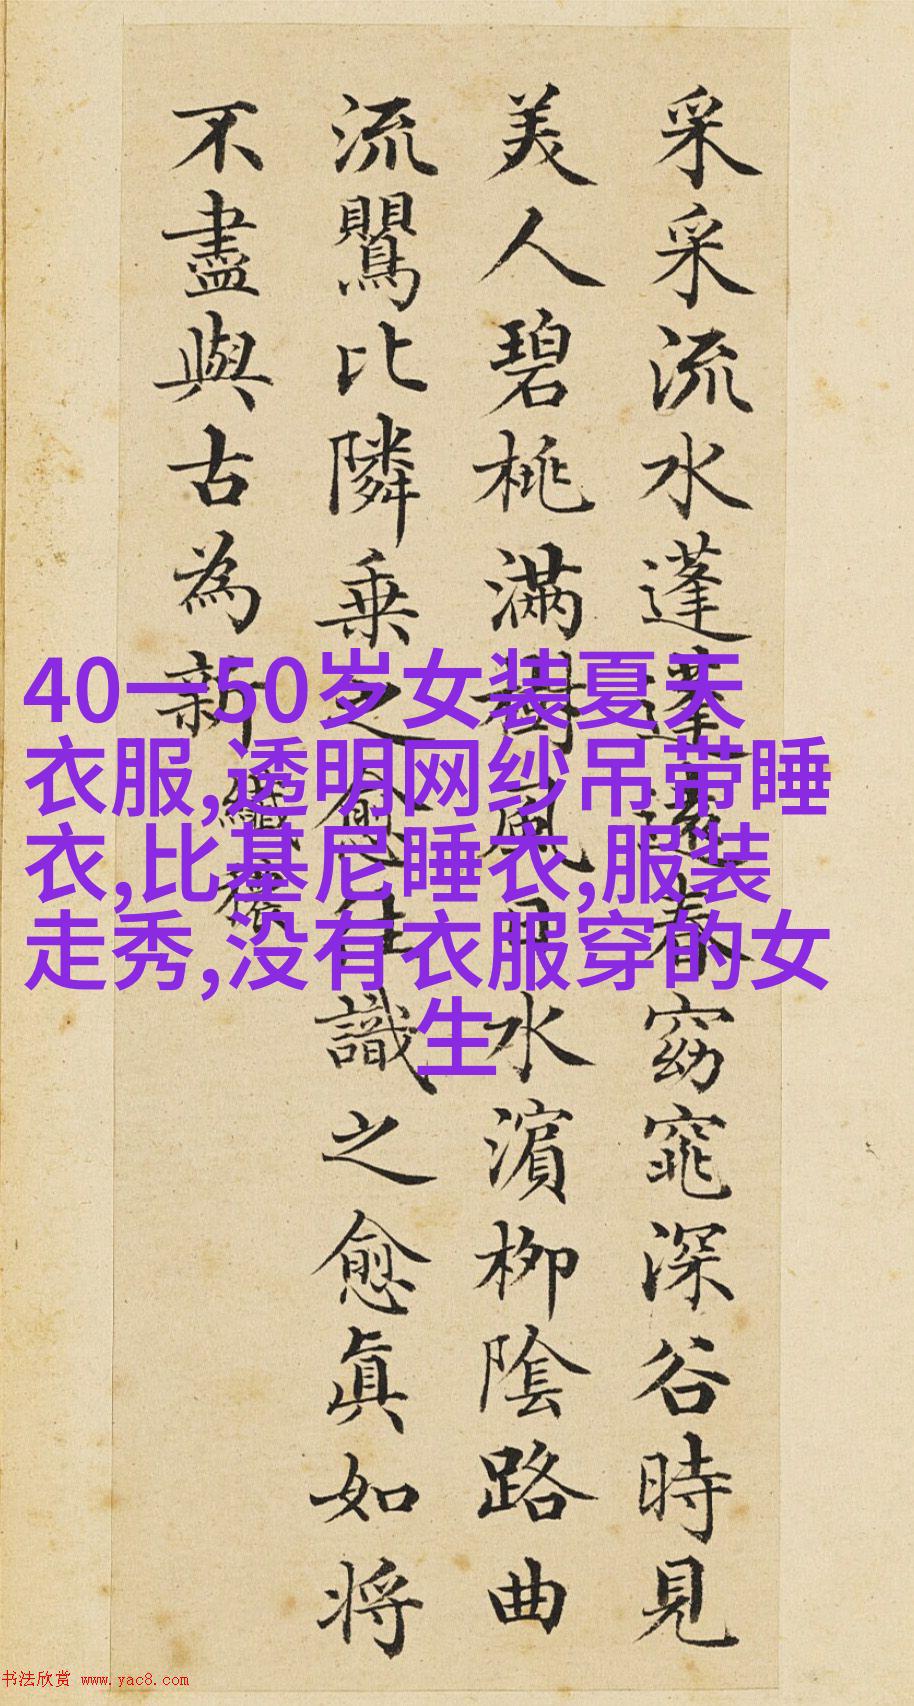 采采流水蓬蓬遠春窈窕深谷時見
美人碧桃滿樹風日水濵柳陰路曲
流鸎比隣乗之愈往識之愈眞如将
不盡與古為新
纖穠
40一50岁女装夏天
衣服,透明网纱吊带睡
衣,比基尼睡衣,服装
走秀,没有衣服穿的女
生
书法欣赏 www.yac8.com